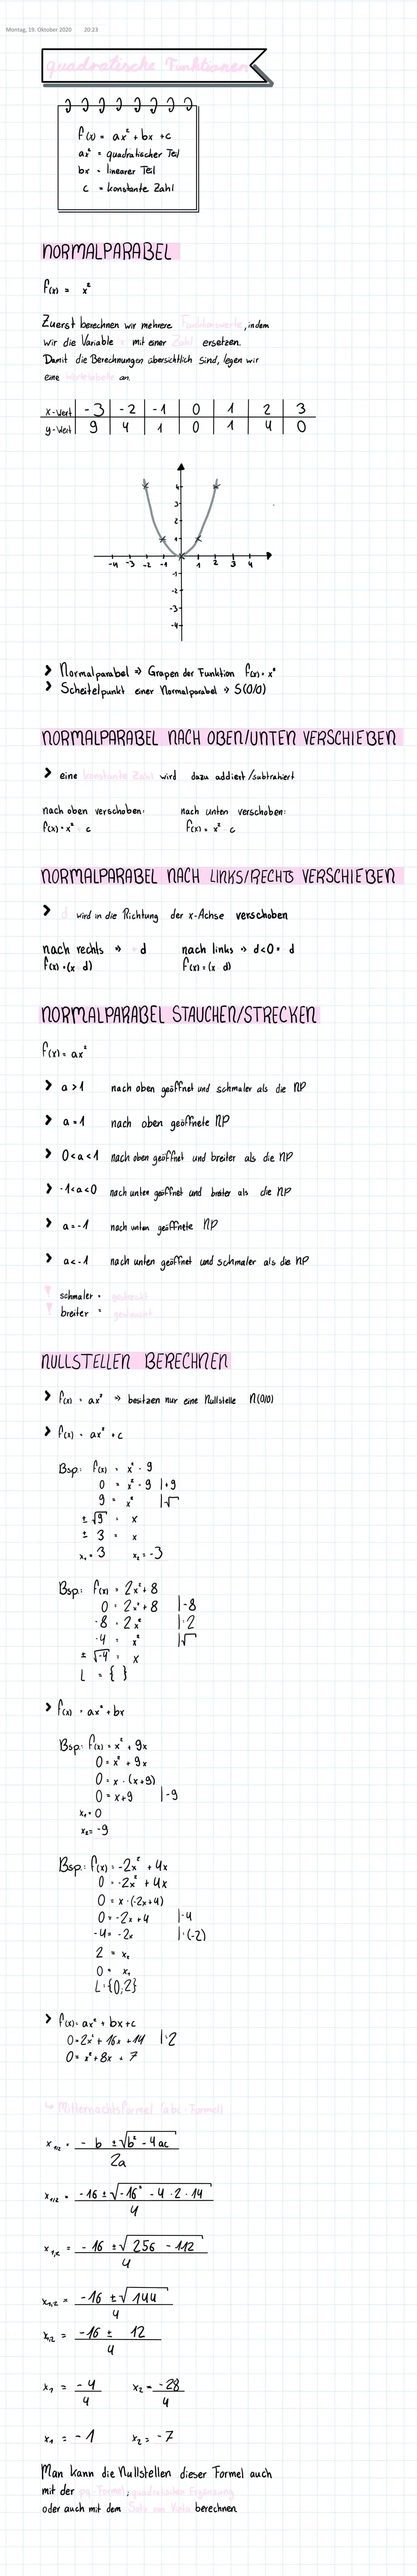 Montag, 19. Oktober 2020 20:23
quadratische Funktionen
f(x) = ax² + bx + c
ax² = quadratischer Teil
bx = linearer Teil
c = konstante Zahl
NORMALPARABEL
f(x) = x²
Zuerst berechnen wir mehrere Funktionswerte, indem
wir die Variable x mit einer Zahl ersetzen.
Damit die Berechnungen übersichtlich sind, legen wir
eine Wertetabelle an.
x-Wert -3 -2 -1 0 1 2 3
y-Wert 9 4 1 0 1 4 0
4
3
2
1
-4 -3 -2 -1 1 2 3 4
-1
-2
-3
-4
> Normalparabel => Grapen der Funktion f(x) = x²
> Scheitelpunkt einer Normalparabel => S(0/0)
NORMALPARABEL NACH OBEN/UNTEN VERSCHIEBEN
> eine konstante Zahl wird dazu addiert/subtrahiert
nach oben verschoben: nach unten verschoben:
f(x) = x² + c f(x) = x² - c
NORMALPARABEL NACH LINKS/RECHTS VERSCHIEBEN
> d wird in die Richtung der x-Achse verschoben
nach rechts => + d nach links => d<0 = d
f(x) = (x d) f(x) = (x d)
NORMALPARABEL STAUCHEN/STRECKEN
f(x) = ax²
> a > 1 nach oben geöffnet und schmaler als die NP
> a = 1 nach oben geöffnete NP
> 0 < a < 1 nach oben geöffnet und breiter als die NP
> -1 < a < 0 nach unten geöffnet und breiter als die NP
> a = -1 nach unten geöffnete NP
> a < -1 nach unten geöffnet und schmaler als die NP
! schmaler = gestreckt
! breiter = gestaucht
NULLSTELLEN BERECHNEN
> f(x) = ax² => besitzen nur eine Nullstelle N(0/0)
> f(x) = ax² + c
Bsp.: f(x) = x² - 9
0 = x² - 9 |+9
9 = x² |√
±√9 = x
± 3 = x
x₁ = 3 x₂ = -3
Bsp.: f(x) = 2x² + 8
0 = 2x² + 8 |-8
-8 = 2x² |:2
-4 = x² |√
±√-4 = x
L = { }
> f(x) = ax² + bx
Bsp.: f(x) = x² + 9x
0 = x² + 9x
0 = x · (x+9)
0 = x+9 |-9
x₁ = 0
x₂ = -9
Bsp.: f(x) = -2x² + 4x
0 = -2x² + 4x
0 = x · (-2x+4)
0 = -2x + 4 |-4
-4 = -2x |:(-2)
2 = x₂
0 = x₁
L={0;2}
> f(x) = ax² + bx + c
0 = 2x² + 16x + 14 |:2
0 = x² + 8x + 7
↳ Mitternachtsformel (abc-Formel)
x₁/₂ = - b ±√b² - 4ac
2a
x₁/₂ = -16 ±√-16² - 4 · 2 · 14
4
x₁,₂ = -16 ±√256 - 112
4
x₁,₂ = -16 ±√144
4
x₁,₂ = -16 ± 12
4
x₁ = -4 x₂ = -28
4 4
x₁ = -1 x₂ = -7
Man kann die Nullstellen dieser Formel auch
mit der pq-Formel, quadratischen Ergänzung
oder auch mit dem Satz von Vieta berechnen.